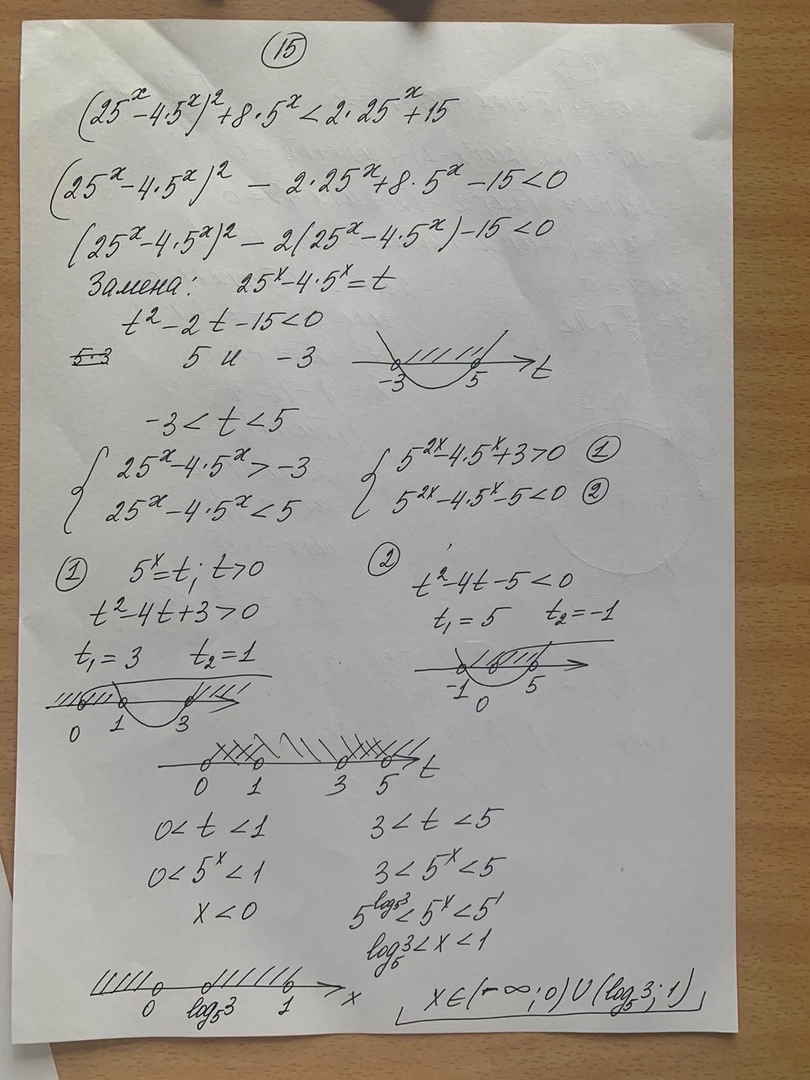 15
(25^x-4·5^x)^2+8·5^x<2·25^x+15
(25^x-4·5^x)^2 - 2·25^x+8·5^x-15<0
(25^x-4·5^x)^2 - 2(25^x-4·5^x)-15<0
Замена: 25^x-4·5^x=t
t^2-2t-15<0
5 и -3
-3 5 t
-3<t<5
{ 25^x-4·5^x>-3 { 5^{2x}-4·5^x+3>0 ①
25^x-4·5^x<5 5^{2x}-4·5^x-5<0 ②
① 5^x=t; t>0
t^2-4t+3>0
t₁=3 t₂=1
0 1 3
② t^2-4t-5<0
t₁=5 t₂=-1
-1 0 5
0 1 3 5 t
0<t<1 3<t<5
0<5^x<1 3<5^x<5
x<0 5^{log₅3}<5^x<5^1
log₅3<x<1
0 log₅3 1 x
x∈(-∞;0)∪(log₅3;1)